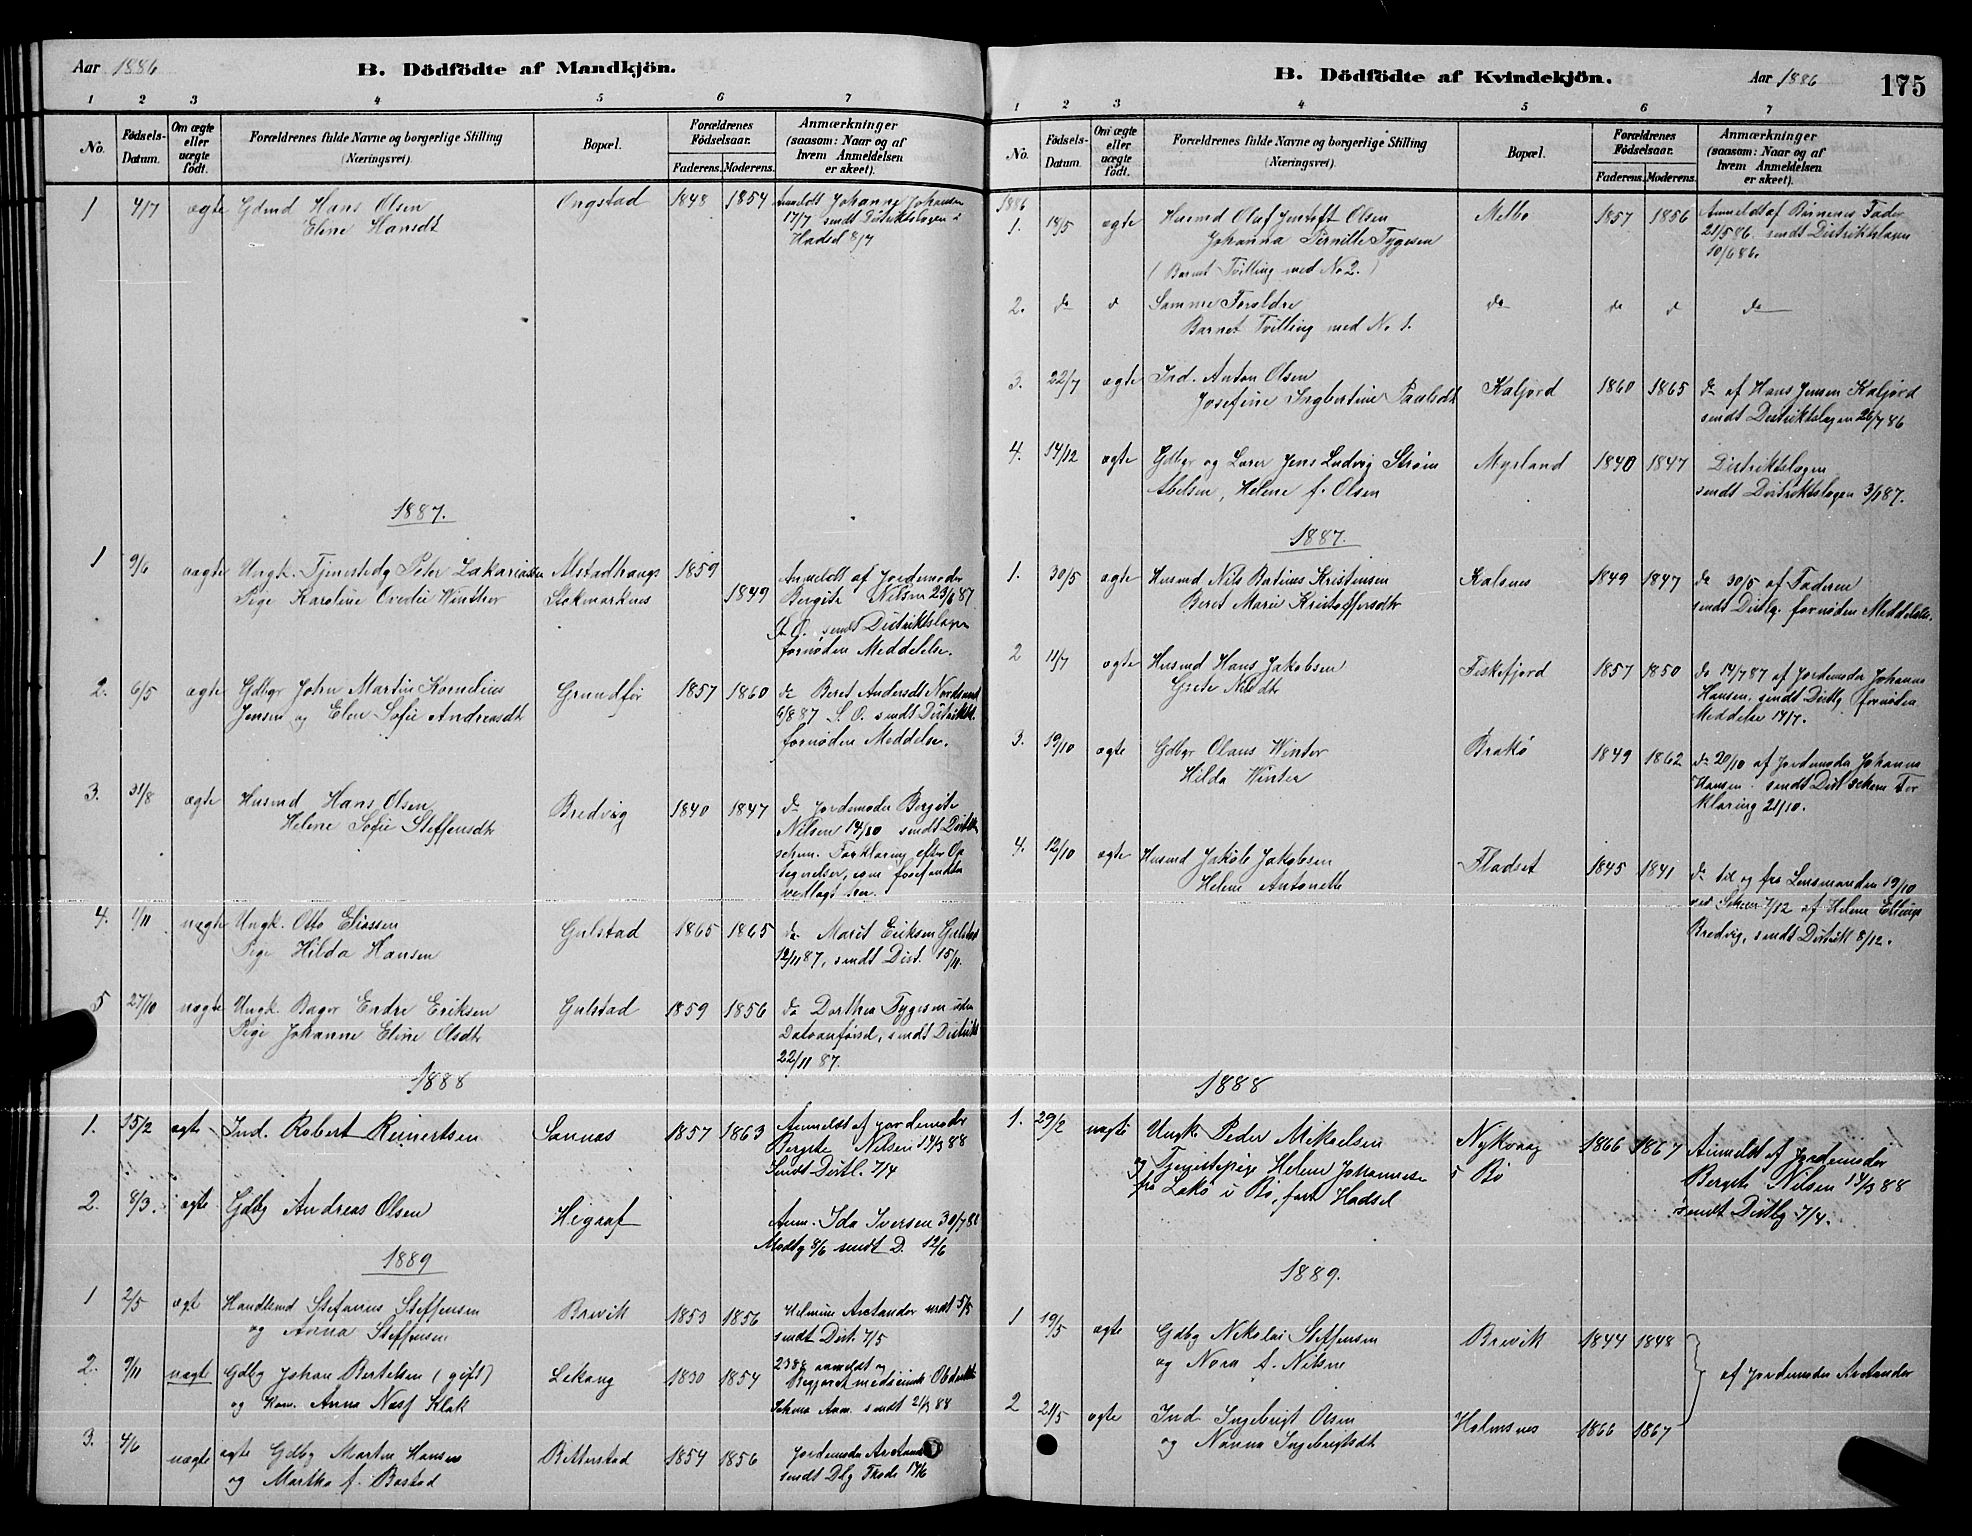 Aar 1886
B. Dödfödte af Mandkjön.
1 2 3 4 5 6 7
No.
Födsels-Datum.
Om ægte eller uægte födt.
Forældrenes fulde Navne og borgerlige Stilling
(Næringsvei)
Bopæl.
Forældrenes Födselsaar.
Faderens. Moderens.
Anmærkninger
(saasom: Naar og af
hvem Anmeldelsen
er skeet).
1 4/7 ægte Gdmd Hans Olsen Ongstad 1848 1854 Anmeldt Johanne Johansen
Eline Hansdt 17/7 sendt Distriktslægen i
Hadsel 8/7
1887.
1 9/6 uægte Ungk. Tjenestedg Peter Zakariassen Alstadhaugs 1859 Anmeldt af Jordemoder
Pige Karoline Ovedie Winther Stokmarknes 1849 Bergite Nilsen 23/6 87
S. O. sendt Distriktslægen
fornøden Meddelelse.
2. 6/5 ægte Gdbgr John Martin Kornelius Grundfør 1857 1860 do Beret Andersdt
Jensen og Elen Sofie Andreasdt 6/8 87 S. O. sendt Distriktsl.
fornøden Meddelse.
3. 31/8 ægte Husmd Hans Olsen Bredvig 1840 1847 do Jordemoder Bergite
Helene Sofie Steffensdt Nilsen 14/10 sendt Distl
schem. Forklaring efter Op
vedlagt
4. 1/11 uægte Ungk. Otto Eliassen Gulstad 1865 1865 do Marit Eriksen Gulstad
Pige Hilda Hansen 12/11 87, sendt Dist. 15/11.
5 27/10 uægte Ungk. Bager Endre Eriksen Gulstad 1859 1856 do Dorthea Tygesen uden
Pige Johanne Eline Olsdt Datoanførsel, sendt Distrikt
22/11 87.
1888
1. 15/2 ægte Ind. Robert Reinertsen Sannas 1857 1863 Anmeldt af Jordemoder
Bergite Nilsen 14/3 88
Sendt Distl. 7/4
2. 8/3. ægte Gdbg Andreas Olsen Heggaf Anm. Ida Iversen 30/7 88
Modtg 8/6 sendt D. 12/6
1889
1 2/5 ægte Handlsmd Stefanus Steffensen Brevik 1853 1856 Helmine Arctander 5/5
og Anna Steffensen sendt Dist. 7/5
2. 9/11 uægte Gdbg Johan Bertelsen (gift) Lekang 1830 1854 anmeldt og
og Anna Næss Klak Schma Anm. sendt 21/3 88
3. 4/6 uægte ægte Gdbg Martin Hansen Bitterstad 1854 1856 Jordemoder Arctand
og Martha f. Bostad sendt Dlg 14/6
B. Dödfödte af Kvindekjön.
Aar 1886
175
1 2 3 4 5 6 7
No.
Födsels-Datum.
Om ægte eller uægte födt.
Forældrenes fulde Navne og borgerlige Stilling
(Næringsvei).
Bopæl.
Forældrenes Födselsaar.
Faderens. Moderens.
Anmærkninger
(saasom: Naar og af
hvem Anmeldelsen
er skeet).
1886
1. 18/5 ægte Husmd Oluf Jentoft Olsen Melbo 1857 1856 Anmeldt af Børnenes Fader
Johanna Pernille Tygesen 21/5 86 sendt Distriktslægen
(Barnet Tvilling med No 2.) 10/6 86.
2. do d Samme Foreldre do do d do
Barnet Tvilling med No 1.
3. 22/7 ægte Ind. Anton Olsen Kaljord 1860 1865 do af Hans Jensen Kaljord
Josefine Ingbertine Paulsdt sendt Distriktslægen 26/7 86
4. 14/12 ægte Gdbgr og Lærer Jens Ludvig Strøm Myrland 1840 1847 Distriktslægen
Abelsen, Helene f. Olsen sendt Distriktslægen 3/1 87.
1887.
1. 30/5 ægte Husmd Nils Batinus Kristensen Kalsnes 1849 1847 do 30/5 af Faderen
Beret Marie Kristoffersdt sendt Distlg. fornøden Meddelelse.
2 11/7 ægte Husmd Hans Jakobsen Fiskefjord 1857 1850 do 14/7 87 af Jordemoder Johanna
Grete Nilsdt Hansen, sendt Distlg fornøden
Meddelse 14/7.
3. 19/10 ægte Gdbgr Olaus Winter Brokø 1849 1862 do 20/10 af Jordemoder Johanna
Hilda Winter Hansen. sendt Dist schem For
klaring 21/10.
4. 12/10 ægte Husmd Jakob Jakobsen Fladset 1845 1841 do til og fra Lensmanden 19/10
Helene Antonette ved Schem 7/12 af Helene Ellings
Bredvig, sendt Distrikt 8/12.
1888
1. 29/2 uægte Ungk. Peder Mikaelsen Nykvaag 1866 1867 Anmeldt af Jordemoder
og Tjenestepige Helene Johannesen Bø Bergete Nilsen 14/3 88
fra i Bø, født Hadsel sendt Distlg 7/4.
1889.
1 19/5 ægte Gdbg Nikolai Steffensen Brevik 1844 1848
og Nora f. Nilsen af Jordemoder Arctander
2 21/5 ægte Ind Ingebrigt Olsen Holmsnes 1866 1867
og Nanna Ingebrigtsdt